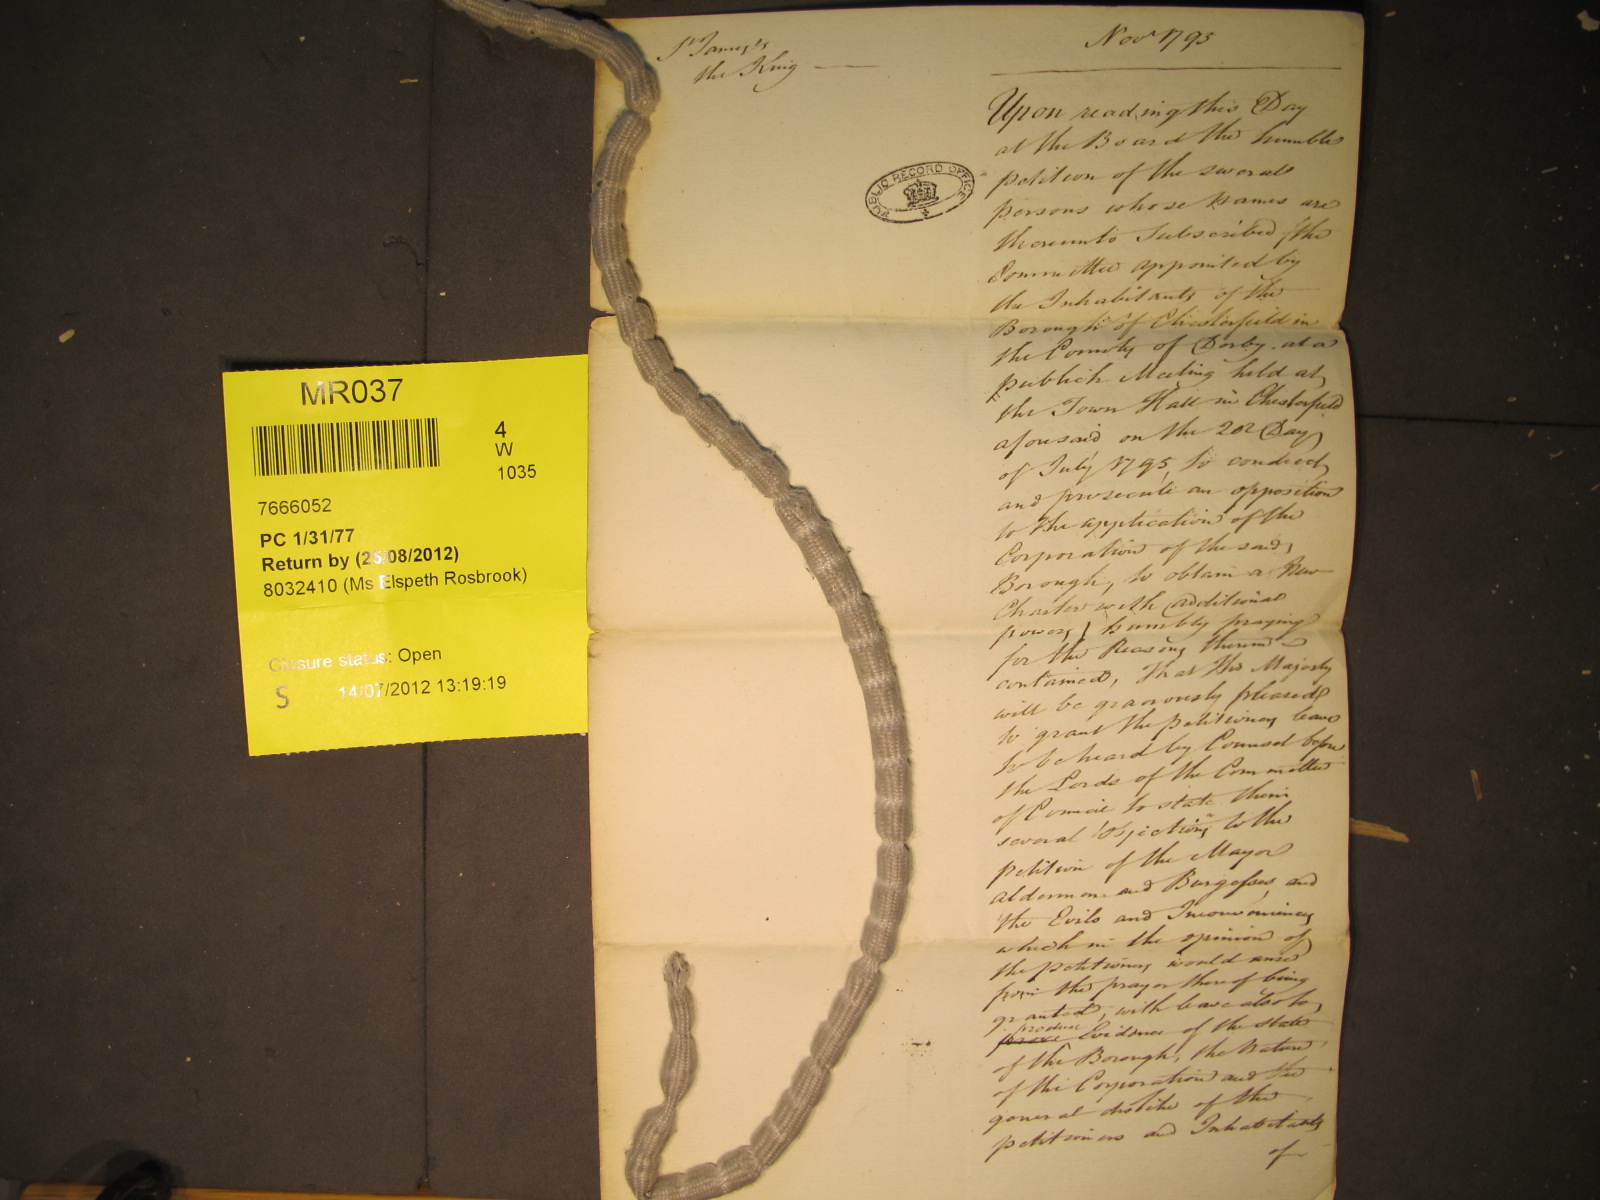 St James's
the King
Novr 1795
PUBLIC RECORD OFFICE
Upon reading this Day
at the Board the humble
petition of the several
persons whose Names are
thereunto Subscribed (the
Committee appointed by
the Inhabitants of the
Borough of Chesterfield in
the County of Derby at a
publick Meeting held at
the Town Hall in Chesterfield
aforesaid on the Day
of July 1795, to conduct
and prosecute an opposition
to the application of the
Corporation of the said
Borough, to obtain a New
Charter with additional
powers) humbly praying
for the Reasons therein
contained, That His Majesty
will be graciously pleased
to grant the petitioners leave
to be heard by Counsel before
the Lords of the Committee
of Council to state their
several Objections to the
petition of the Mayor
Aldermen and Burgesses, and
the Evils and Inconveniency
which in the opinion of
the petitioners would arise
from the prayer thereof being
granted, with leave also to
produce
prove Evidence of the State
of the Borough, the Nature
of the Corporation and the
general dislike of the
petitioners and Inhabitants
of
MR037
4
W
1035
7666052
PC 1/31/77
Return by (25/08/2012)
8032410 (Ms Elspeth Rosbrook)
Closure status: Open
S
14/07/2012 13:19:19